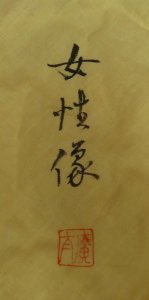 女性像